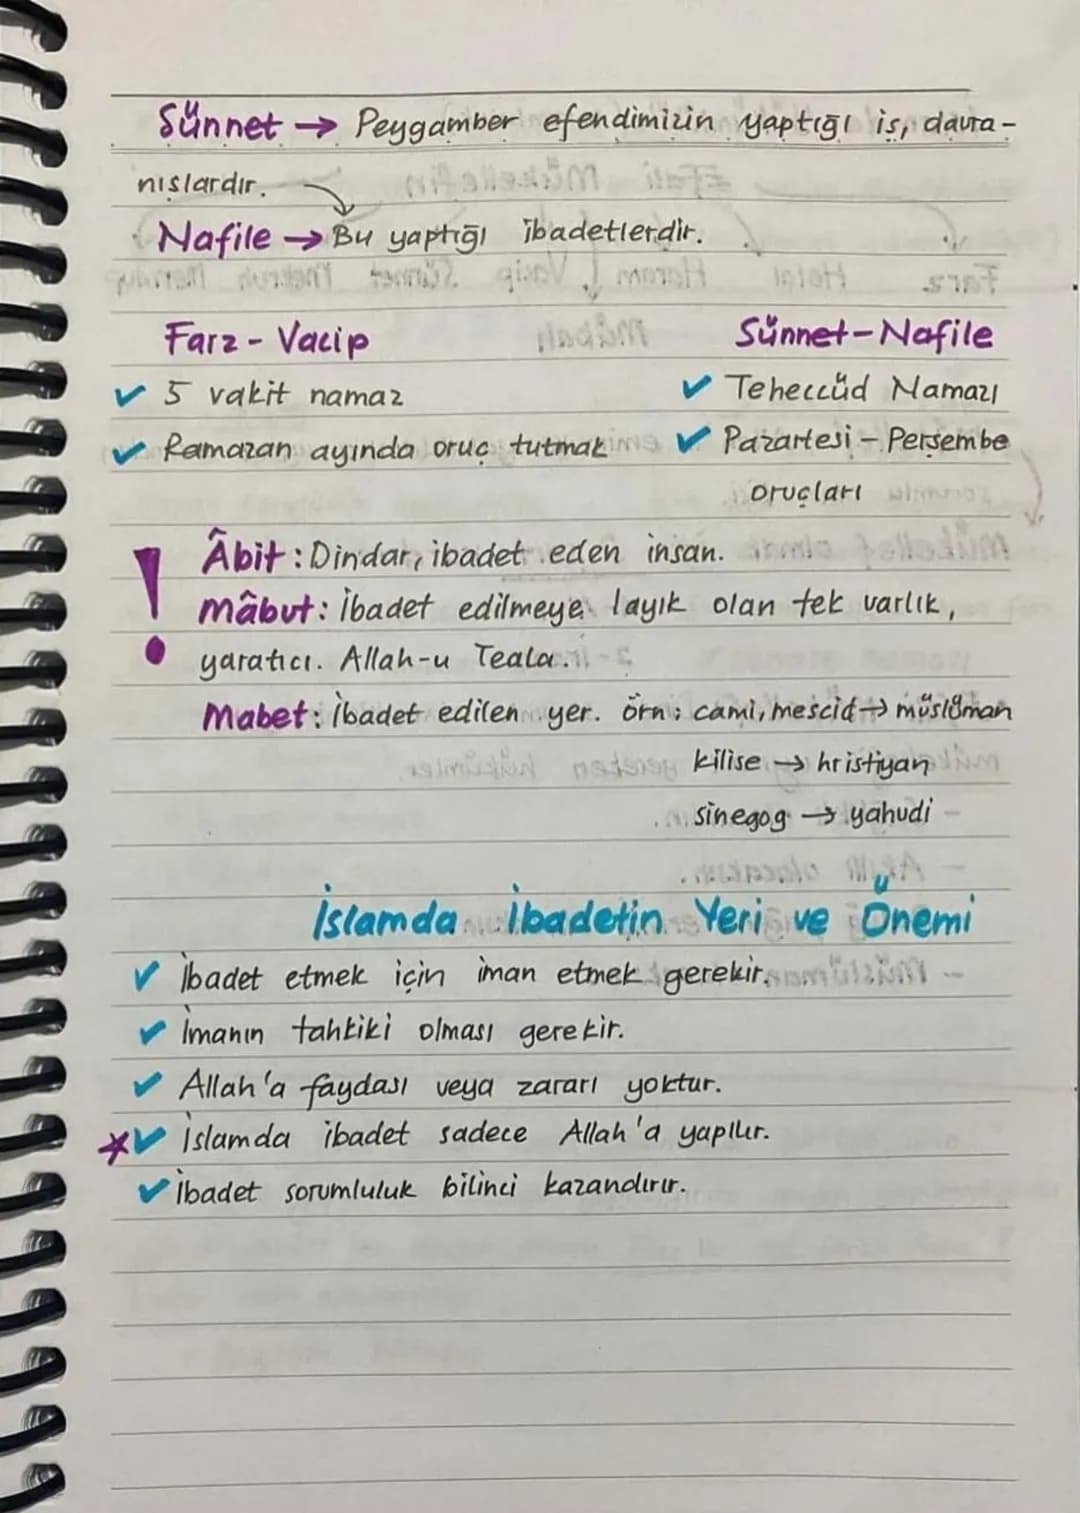 Sünnet → Peygamber efendimizin yaptığı iş, davra-
nışlardır.
Nafile → Bu yaptığı ibadetlerdir.
Farz - Vacip
✓ 5 vakit namaz
✓ Ramazan ayında oruç tutmak
Sünnet-Nafile
✓ Teheccüd Namazı
✓ Pazartesi - Perşembe
oruçları
! Âbit : Dindar, ibadet eden insan.
Mâbut : İbadet edilmeye layık olan tek varlık,
yaratıcı. Allah-u Teala.
Mabet : İbadet edilen yer. Örn: cami, mescid → müslüman
kilise → hristiyan
sinegog → yahudi
İslamda İbadetin Yeri ve Önemi
✓ İbadet etmek için iman etmek gerekir.
✓ İmanın tahkiki olması gerekir.
✓ Allah'a faydası veya zararı yoktur.
*✓ İslamda ibadet sadece Allah'a yapılır.
✓ İbadet sorumluluk bilinci kazandırır.